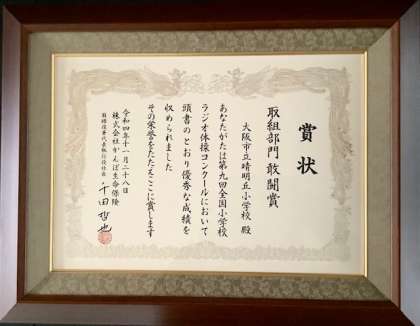 賞状
取組部門 敢闘賞
大阪市立晴明丘小学校 殿
あなたがたは第九回全国小学校
ラジオ体操コンクールにおいて
頭書のとおり優秀な成績を
収められました
その栄誉をたたえここに賞します
令和四年十一月二十八日
株式会社かんぽ生命保険
取締役兼代表執行役社長 千田哲也